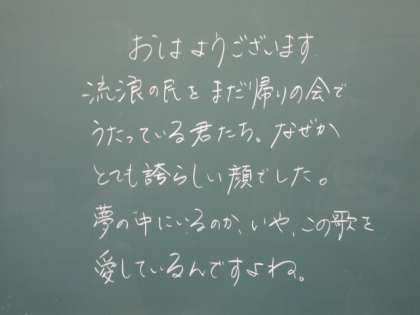 おはようございます
流浪の民をまだ帰りの会で
うたっている君たち。なぜか
とても誇らしい顔でした。
夢の中にいるのか、いや、この歌を
愛しているんですよね。